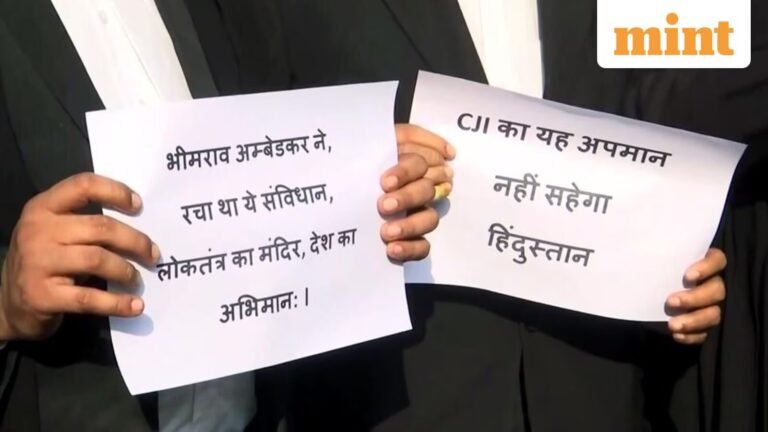 mint
भीमराव अम्बेडकर ने,
रचा था ये संविधान,
लोकतंत्र का मंदिर, देश का
अभिमानः।
CJI का यह अपमान
नहीं सहेगा
हिंदुस्तान